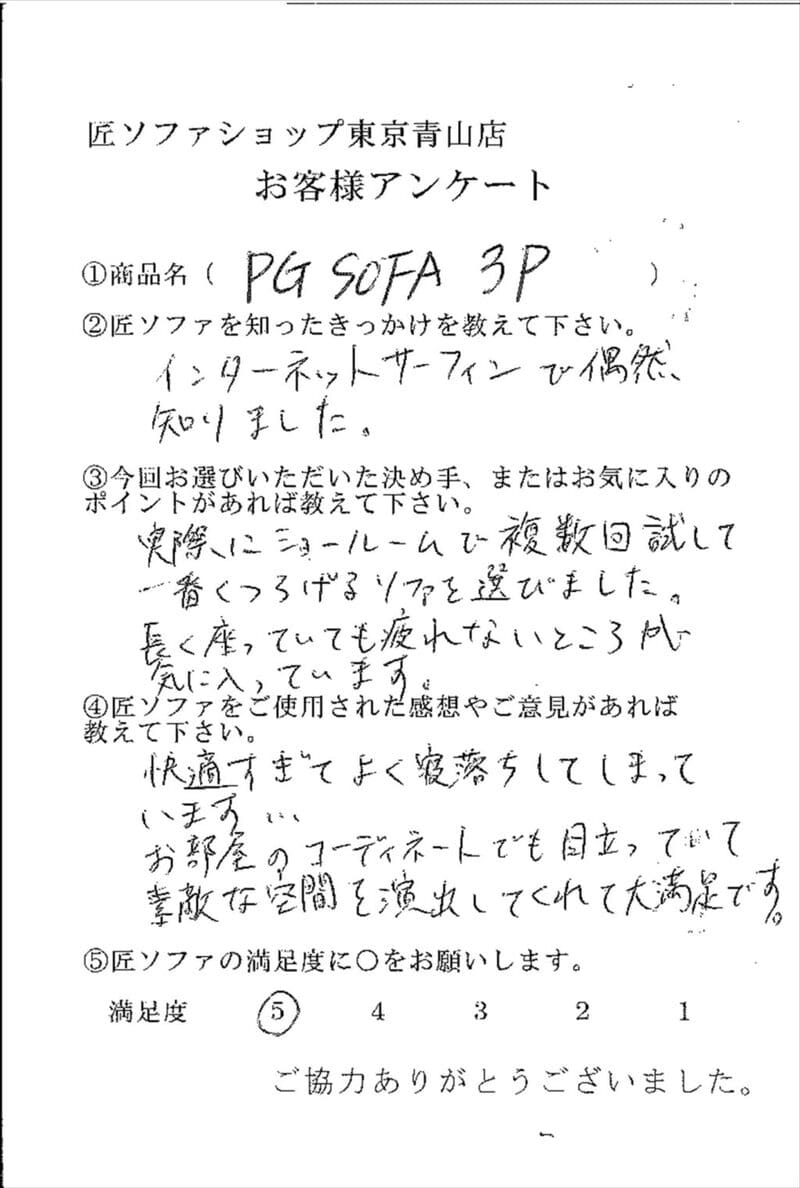 匠ソファショップ東京青山店
お客様アンケート
①商品名（ PG SOFA 3P ）
②匠ソファを知ったきっかけを教えて下さい。
インターネットサーフィンで偶然、
知りました。
③今回お選びいただいた決め手、またはお気に入りの
ポイントがあれば教えて下さい。
実際にショールームで複数回試して
一番くつろげるソファを選びました。
長く座っていても疲れないところが
気に入っています。
④匠ソファをご使用された感想やご意見があれば
教えて下さい。
快適すぎてよく寝落ちしてしまって
います...
お部屋のコーディネートでも目立っていて
素敵な空間を演出してくれて大満足です。
⑤匠ソファの満足度に○をお願いします。
満足度 5 4 3 2 1
ご協力ありがとうございました。